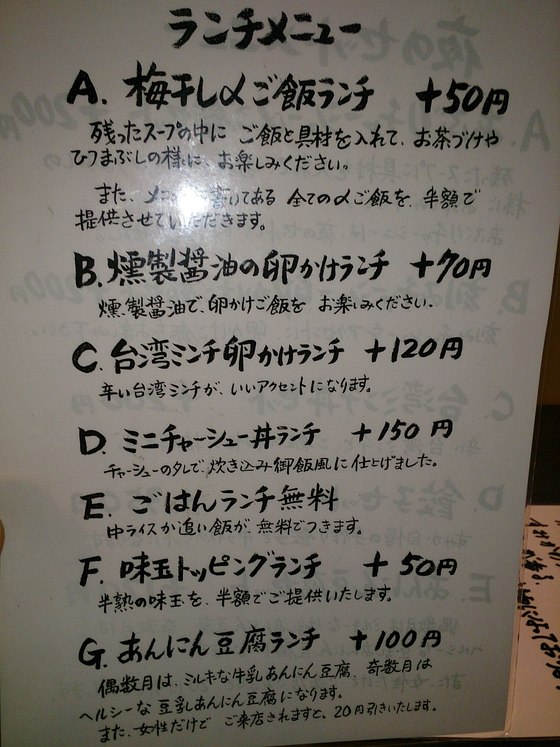 ランチメニュー
A. 梅干し〆ご飯ランチ +50円
残ったスープの中に ご飯と具材を入れて、お茶づけや
ひつまぶしの様に、お楽しみください。
また、メニ 書いてある 全ての〆ご飯を、半額で
提供させていただきます。
B. 燻製醤油の卵かけランチ +70円
燻製醤油で、卵かけご飯を お楽しみください。
C. 台湾ミンチ卵かけランチ +120円
辛い台湾ミンチが、いいアクセントになります。
D. ミニチャーシュー丼ランチ +150円
チャーシューのタレで、炊き込み御飯風に仕上げました。
E. ごはんランチ無料
中ライスか追い飯が、無料でつきます。
F. 味玉トッピングランチ +50円
半熟の味玉を、半額でご提供いたします。
G. あんにん豆腐ランチ +100円
偶数月は、ミルキな牛乳あんにん豆腐、奇数月は
ヘルシーな豆乳あんにん豆腐になります。
また、女性だけで ご来店されますと、20円引きいたします。